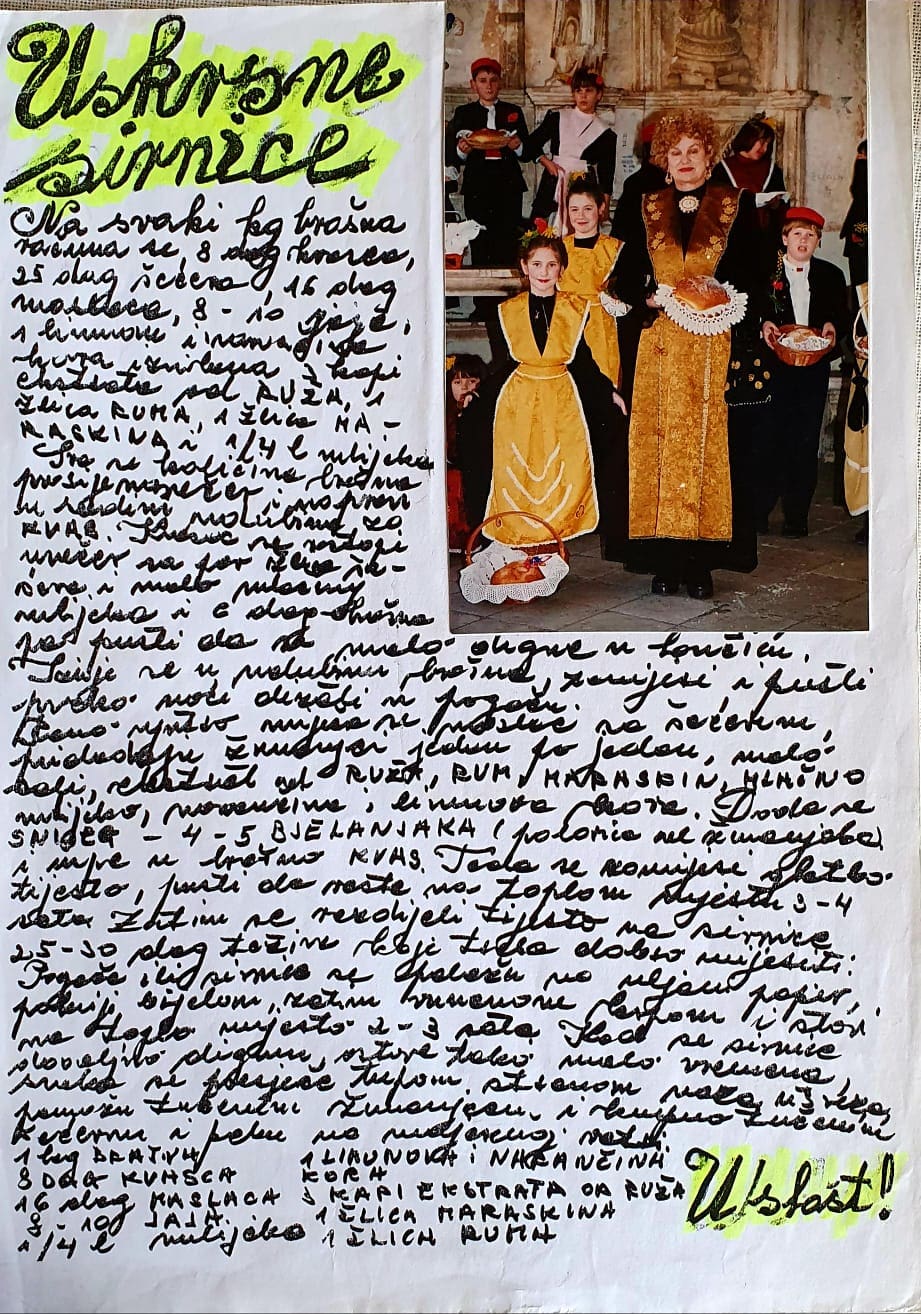 Uskrsne
sirnice
Na svaki kg brašna
računa se 8 dag kvasca,
25 dag šećera, 16 dag
maslaca, 8 - 10 jaja,
1 limunova i narančina
kora izribana 3 kapi
ekstrata od RUŽA, 1
žlica RUMA, 1 žlica MA-
RASKINA i 1/4 l mlijeka
Sva se količina brašna
prosije navečer
u sredini udubina za
KVAS. Kvasac se rastopi
uvečer sa par žlica še-
ćera i malo mlačnog
mlijeka i 6 dag brašna
pa pušti da se malo digne u lončiću.
Salije se u udubinu brašna, zamijesi i pušti
preko noći držati u pogači.
ujutro mijesa se maslac sa šećerom,
pridodaju žumanjci jedan po jedan, malo
soli, ekstrat od RUŽA, RUM, MARASKIN, MLAČNO
mlijeko, narančina i limunova kora. Doda se
SNIJEG - 4-5 BJELANJAKA (polovica ne žumanjaka)
i ulije u brašno KVAS. Tada se zamijesi glatko
tijesto, pusti da raste na toplom mjestu 3-4
sata. Zatim se razdijeli tijesto na sirnice
25-30 dag težine koje treba dobro mijesiti.
Pogače ili sirnice se polože na uljani papir,
pokriju bijelom, zatim vunenom krpom i stavi
na toplo mjesto 2-3 sata. Kad se sirnice
dovoljno dignu, ostave tako malo vremena,
svaka se posiječe tupom stranom noža u 3 reza,
pomažu žumanjcem i krupno tučenim
šećerom i peku na umjerenoj vatri.
1 kg BRAŠNA 1 LIMUNOVA i NARANČINA
8 DAG KVASCA KORA
16 dag MASLACA 3 KAPI EKSTRATA OD RUŽA
8 - 10 JAJA 1 ŽLICA MARASKINA
1/4 l mlijeka 1 ŽLICA RUMA
U slast!